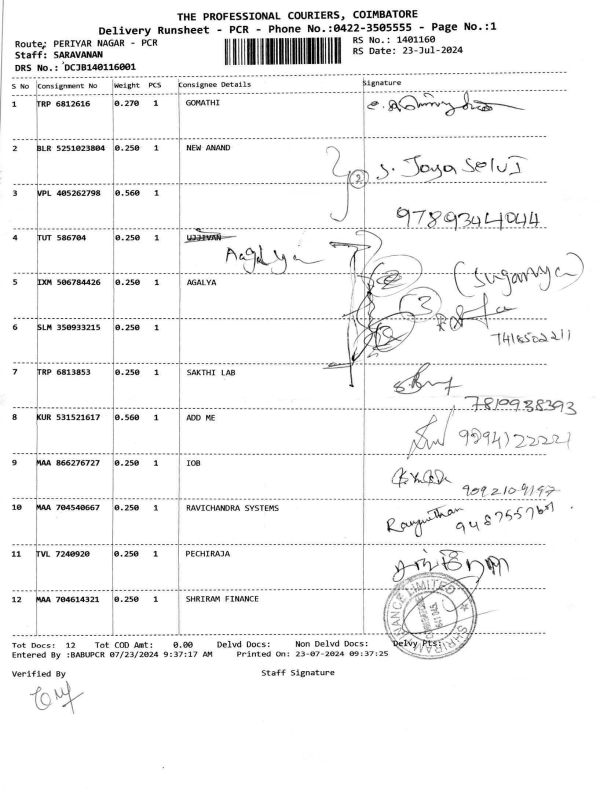 THE PROFESSIONAL COURIERS, COIMBATORE
Delivery Runsheet - PCR - Phone No.:0422-3505555 - Page No.:1
Route: PERIYAR NAGAR - PCR
RS No.: 1401160
Staff: SARAVANAN
RS Date: 23-Jul-2024
DRS No.: DCJB140116001
S No Consignment No Weight PCS Consignee Details Signature
1 TRP 6812616 0.270 1 GOMATHI
2 BLR 5251023804 0.250 1 NEW ANAND
2 S. Jaya Selvi
3 VPL 405262798 0.560 1
9789344044
4 TUT 586704 0.250 1 UJJIVAN
Aagalya
(Suganya)
5 IXM 506784426 0.250 1 AGALYA
3
6 SLM 350933215 0.250 1
7418502211
7 TRP 6813853 0.250 1 SAKTHI LAB
7810938393
8 KUR 531521617 0.560 1 ADD ME
9294122221
9 MAA 866276727 0.250 1 IOB
10 MAA 704540667 0.250 1 RAVICHANDRA SYSTEMS
11 TVL 7240920 0.250 1 PECHIRAJA
12 MAA 704614321 0.250 1 SHRIRAM FINANCE
SHRIRAM FINANCE LIMITED
Tot Docs: 12 Tot COD Amt: 0.00 Delvd Docs: Non Delvd Docs: Delvy Pts:
Entered By :BABUPCR 07/23/2024 9:37:17 AM Printed On: 23-07-2024 09:37:25
Verified By Staff Signature